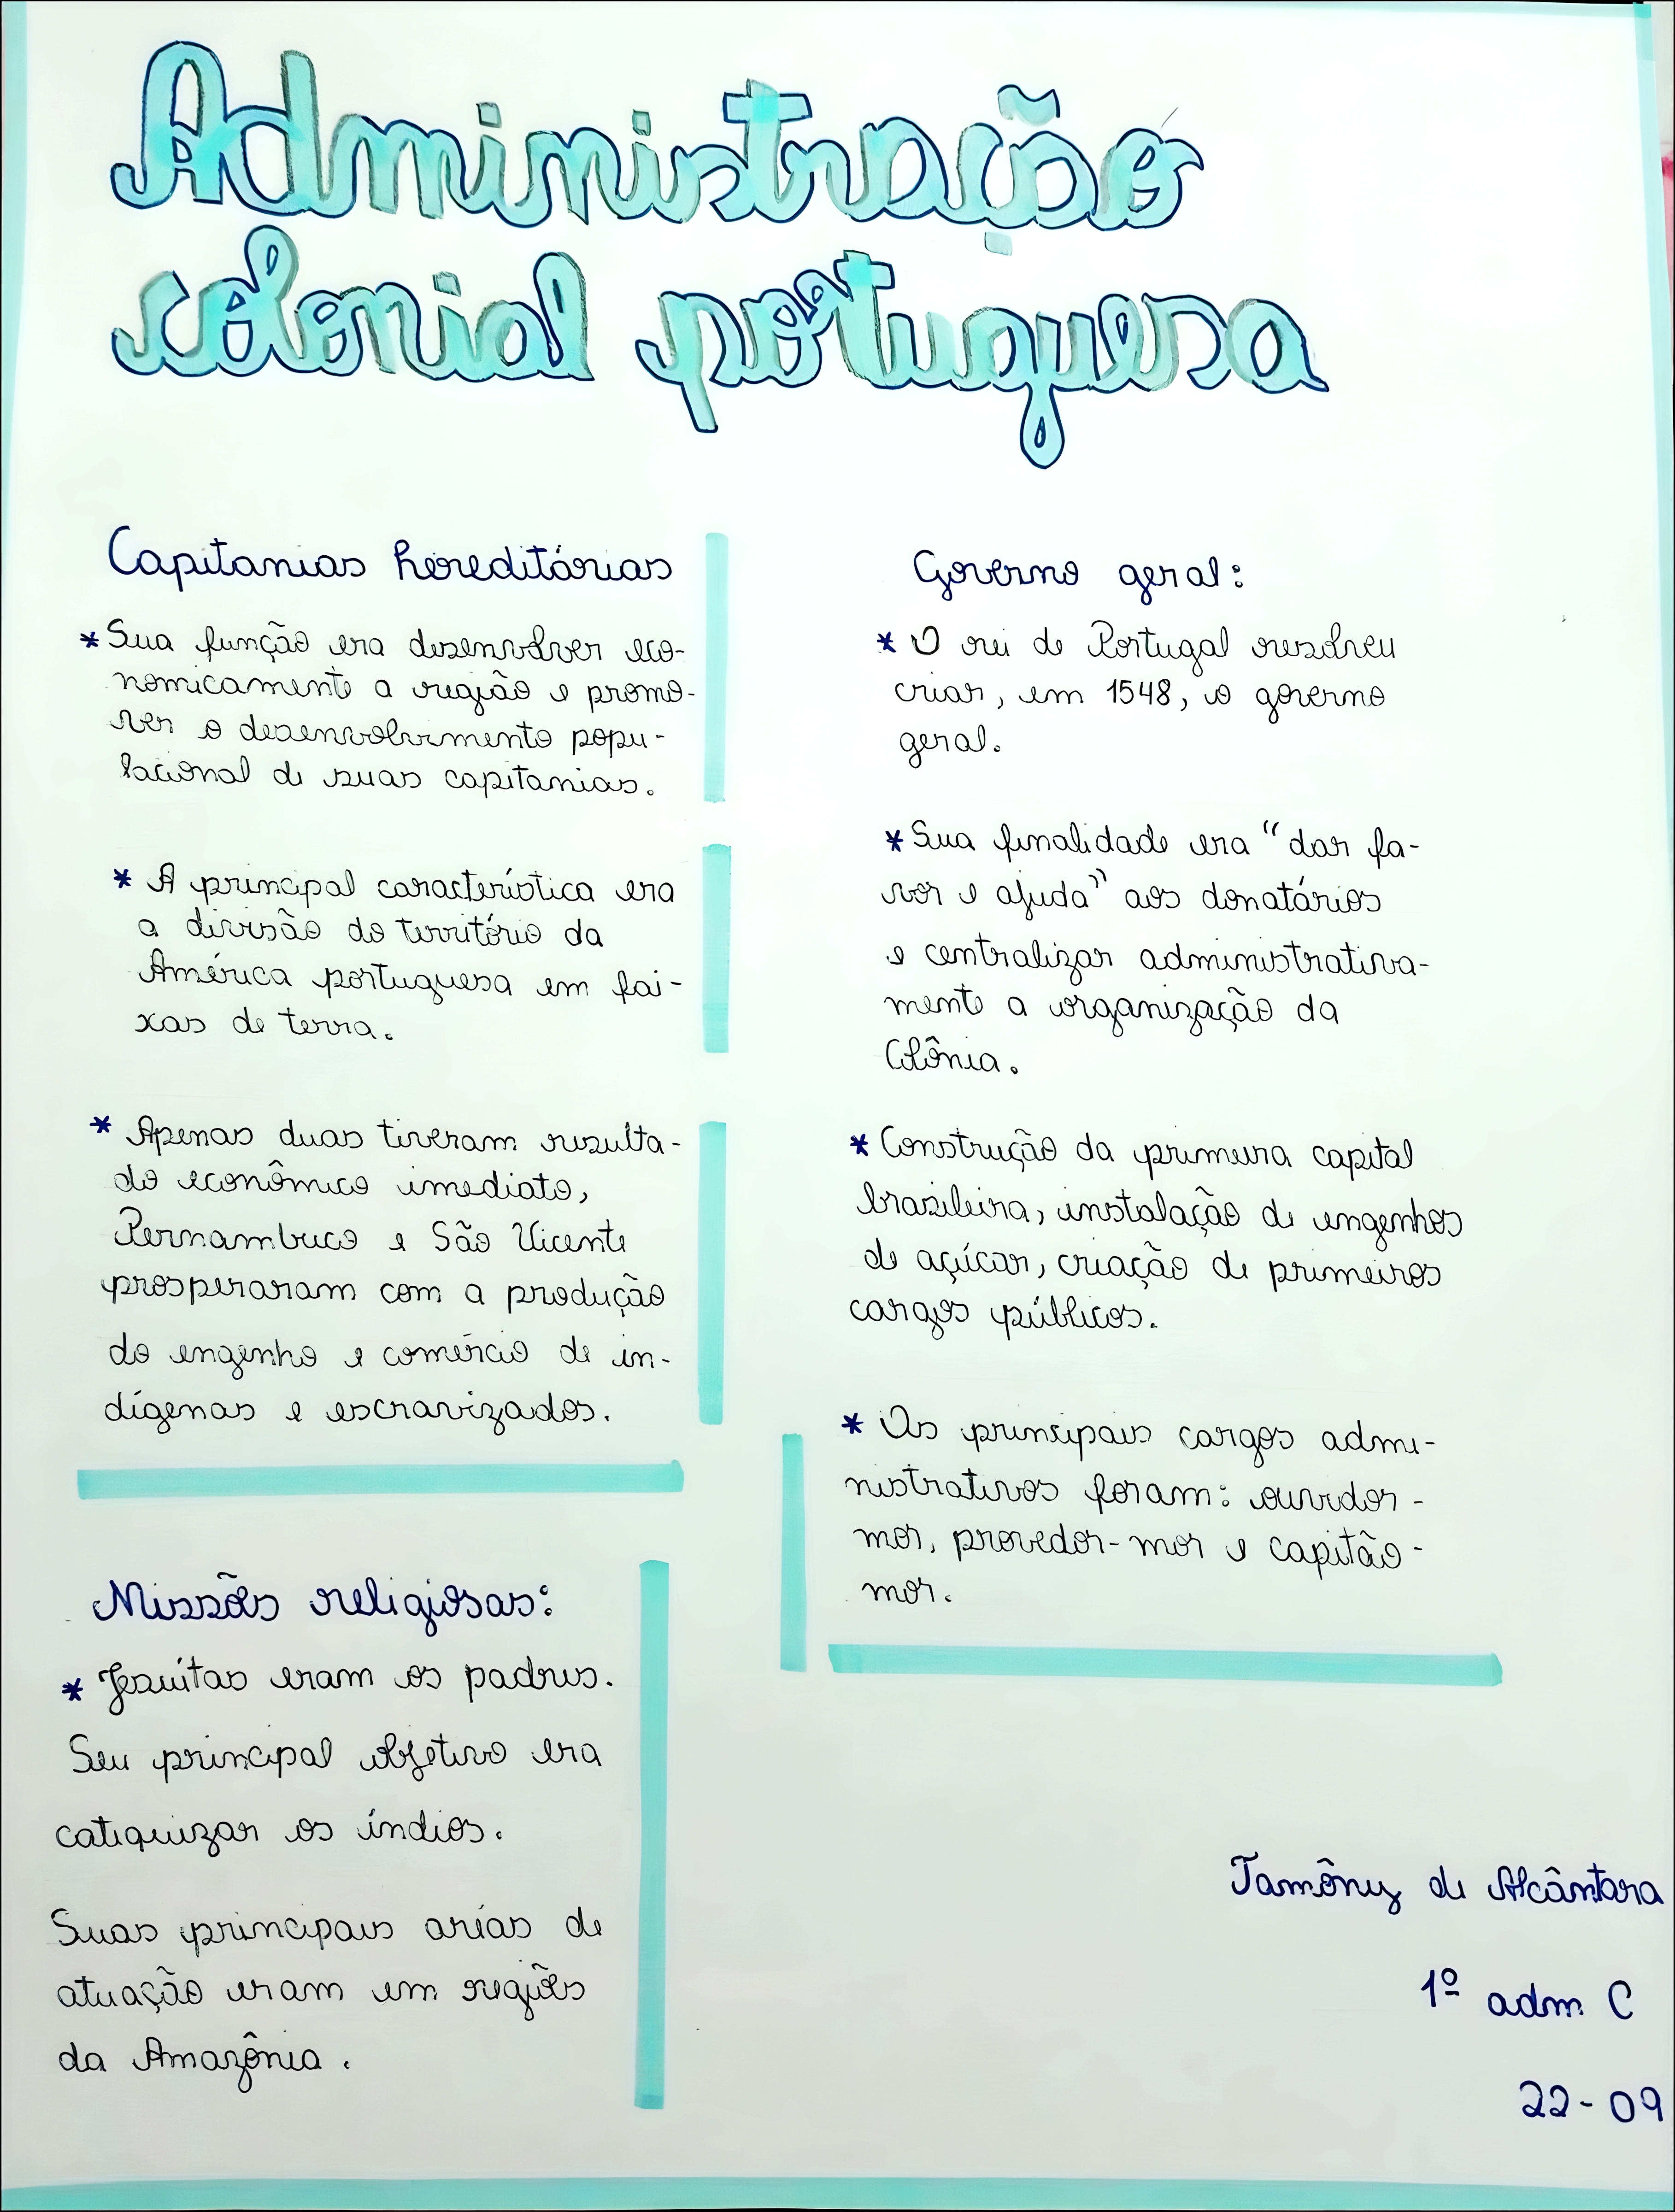 Administração
colonial portuguesa
Capitanias hereditárias
* Sua função era desenvolver eco-
nomicamente a região e promo-
ver o desenvolvimento popu-
lacional de suas capitanias.
* A principal característica era
a divisão do território da
América portuguesa em fai-
xas de terra.
* Apenas duas tiveram resulta-
do econômico imediato,
Pernambuco e São Vicente
prosperaram com a produção
do engenho e comércio de in-
dígenas e escravizados.
Missões religiosas:
* Jesuítas eram os padres.
Seu principal objetivo era
catequizar os índios.
Suas principais aréas de
atuação eram em regiões
da Amazônia.
Governo geral:
* O rei de Portugal resolveu
criar, em 1548, o governo
geral.
* Sua finalidade era “dar fa-
vor e ajuda” aos donatários
e centralizar administrativa-
mente a organização da
Colônia.
* Construção da primeira capital
brasileira, instalação de engenhos
de açúcar, criação de primeiros
cargos públicos.
* Os principais cargos admi-
nistrativos foram: ouvidor-
mor, provedor-mor e capitão-
mor.
Tamôny de Alcântara
1º adm C
22-09